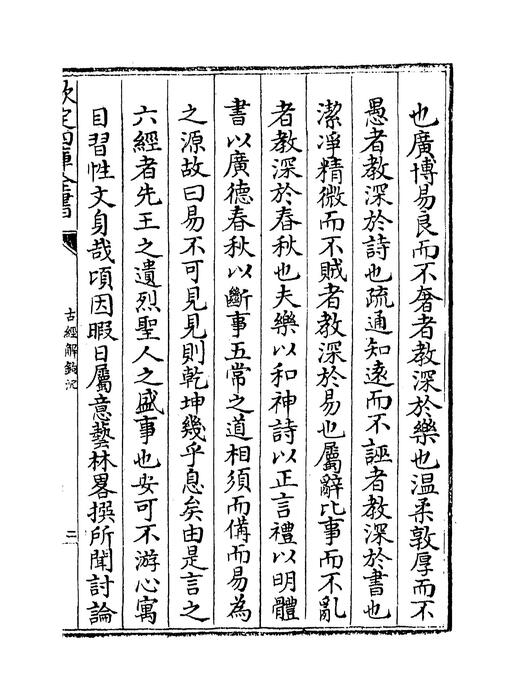 也廣博易良而不奢者教深於樂也温柔敦厚而不
愚者教深於詩也疏通知逺而不誣者教深於書也
潔凈精微而不賊者教深於易也屬辭比事而不亂
者教深於春秋也夫樂以和神詩以正言禮以明體
書以廣徳春秋以斷事五常之道相須而備而易為
之源故曰易不可見見則乾坤幾乎息矣由是言之
六經者先王之遺烈聖人之盛事也安可不游心寓
目習性文身哉頃因暇日屬意藝林畧撰所聞討論
欽定四庫全書
古經解鉤沉
二